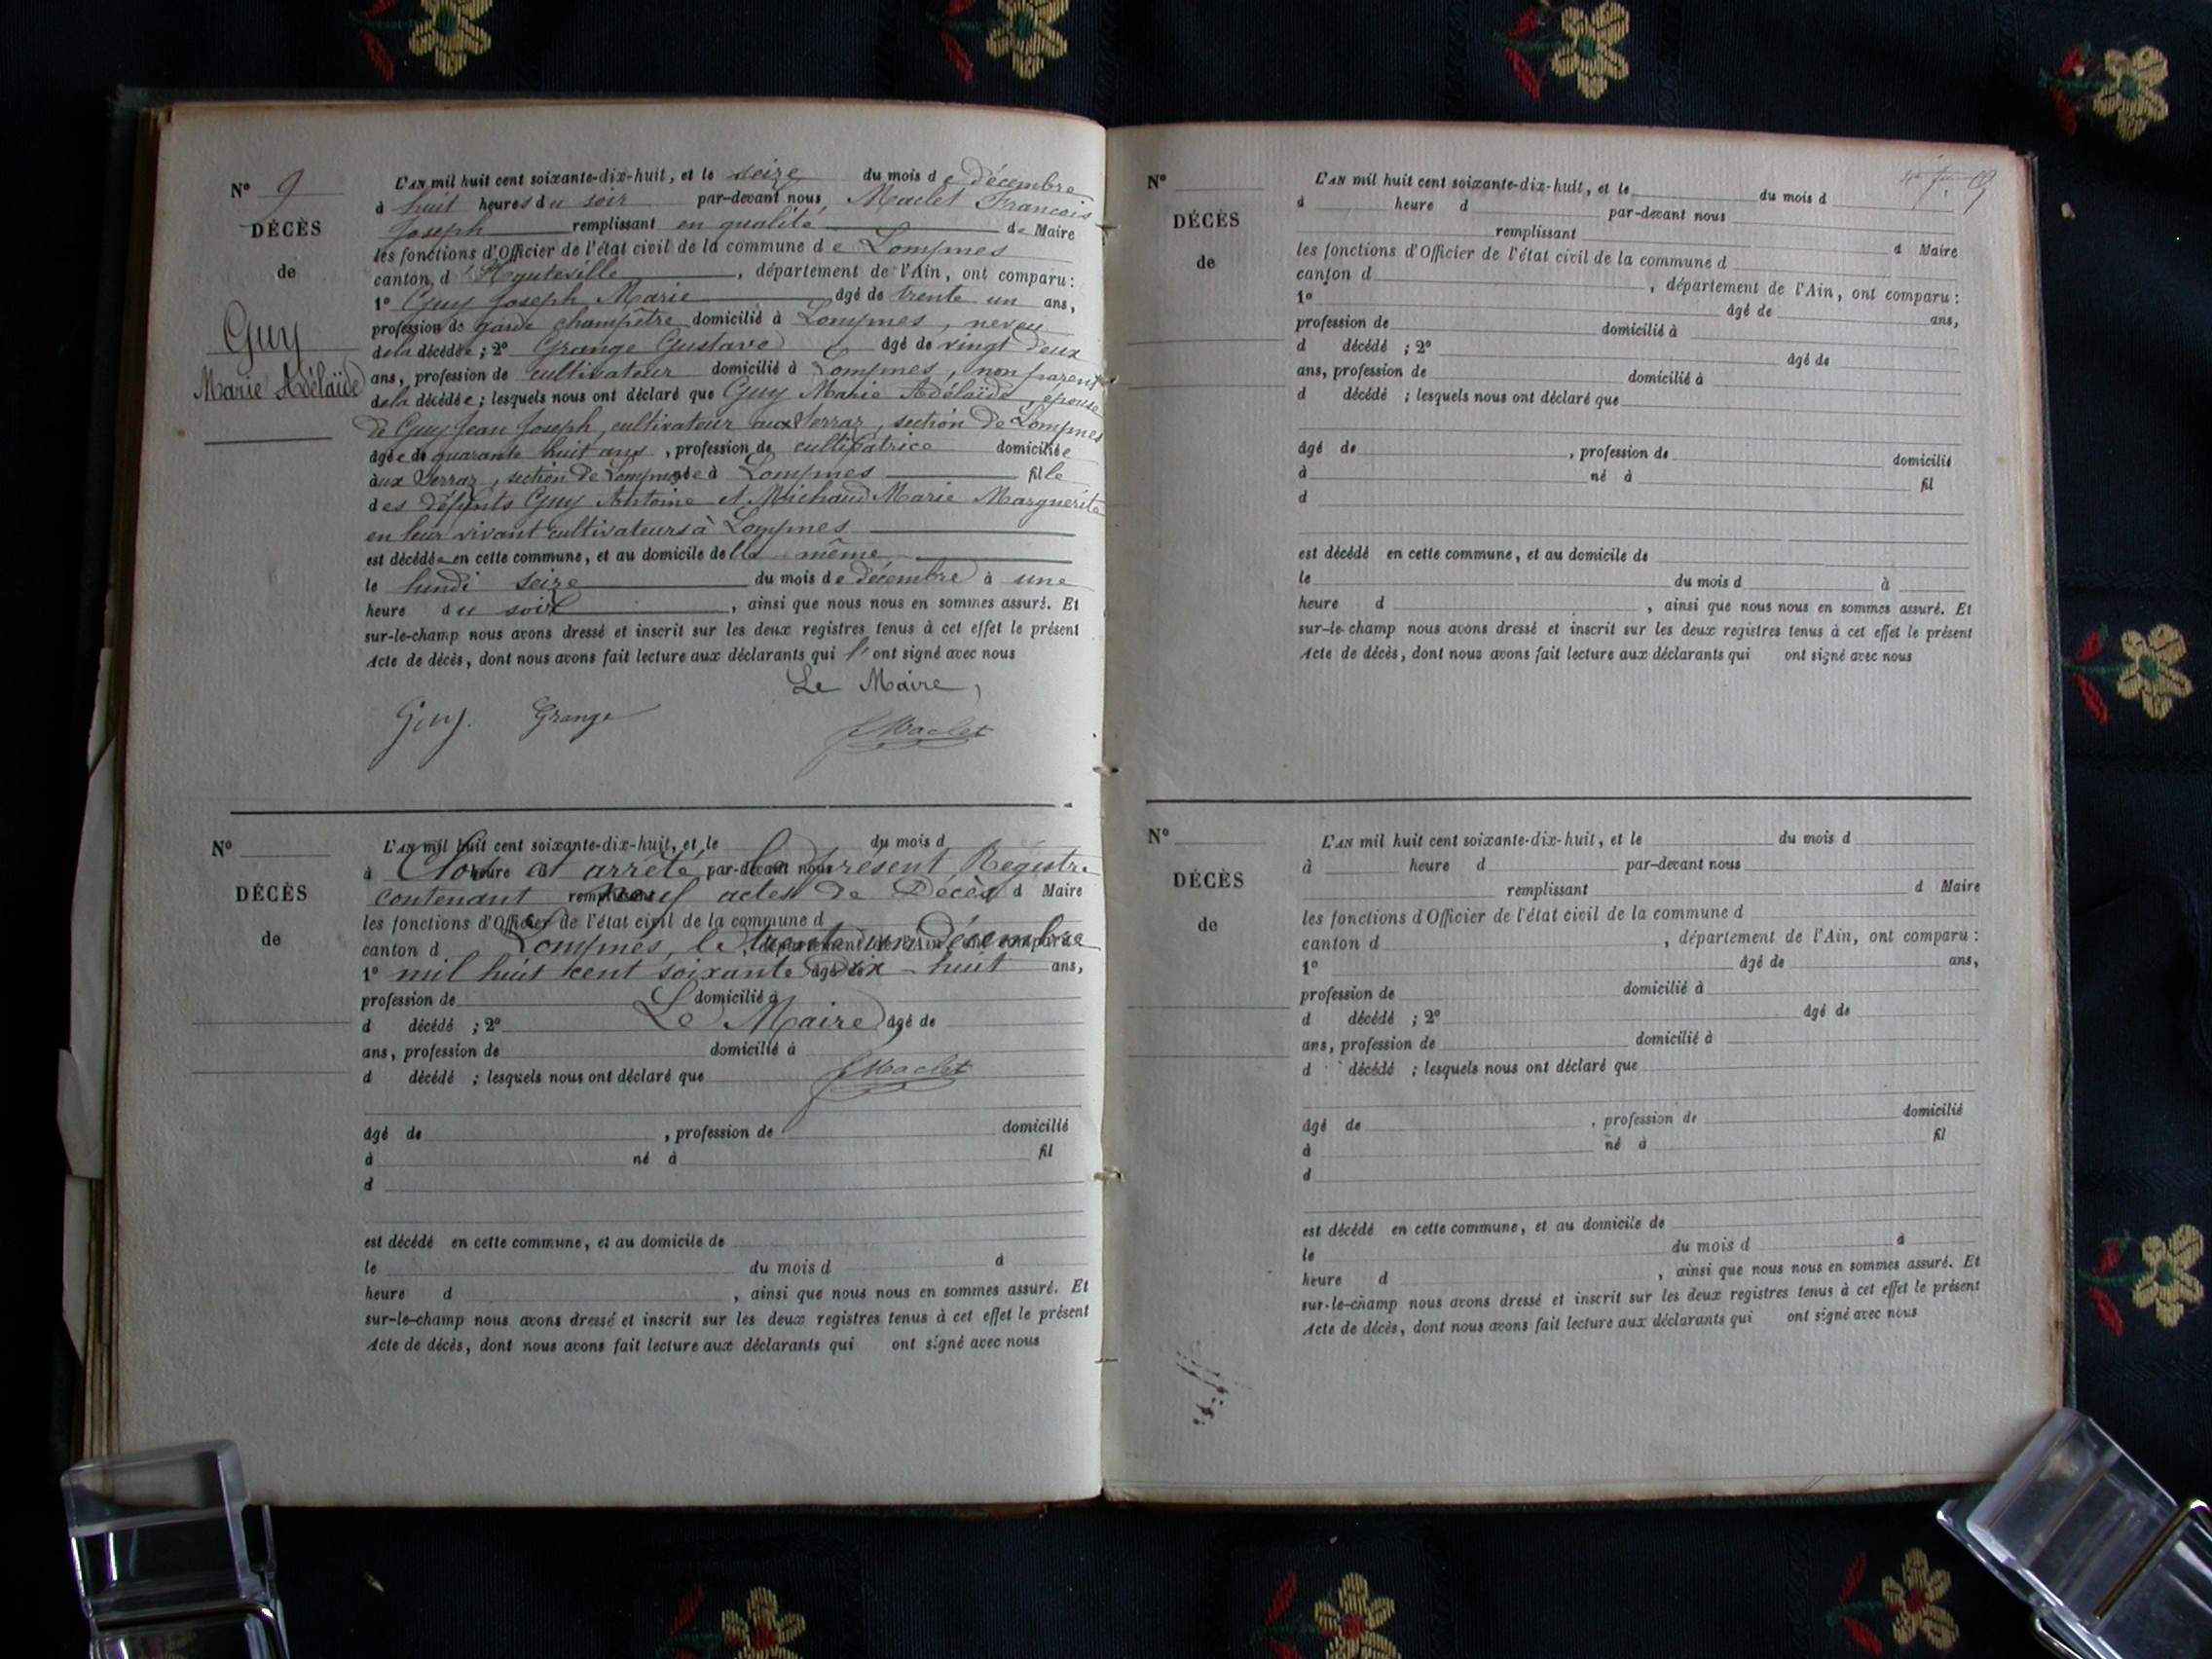 N° 9
DÉCÈS
de
Guy
Marie Adélaïde
L'AN mil huit cent soixante-dix-huit, et le seize du mois de décembre
à huit heures du soir par-devant nous, Maclet François
Joseph remplissant en qualité de Maire
les fonctions d'Officier de l'état civil de la commune de Lompnes
canton d'Hauteville, département de l'Ain, ont comparu:
1° Guy Joseph Marie âgé de trente un ans,
profession de garde champêtre domicilié à Lompnes, neveu
de la décédée; 2° Grange Gustave âgé de vingt deux
ans, profession de cultivateur domicilié à Lompnes, non parent
de la décédée; lesquels nous ont déclaré que Guy Marie Adélaïde, épouse
de Guy Jean Joseph, cultivateur aux Serraz, section de Lompnes
âgée de quarante huit ans, profession de cultivatrice domiciliée
aux Serraz, section de Lompnes née à Lompnes fille
des défunts Guy Antoine et Michaud Marie Marguerite
en leur vivant cultivateurs à Lompnes
est décédée en cette commune, et au domicile de la même
le lundi seize du mois de décembre à une
heure du soir, ainsi que nous nous en sommes assuré. Et
sur-le-champ nous avons dressé et inscrit sur les deux registres tenus à cet effet le présent
Acte de décès, dont nous avons fait lecture aux déclarants qui l'ont signé avec nous
Le Maire,
Guy. Grange JMaclet
N°
DÉCÈS
de
L'AN mil huit cent soixante-dix-huit, et le du mois d
à heure d par-devant nous
Clos et arrêté le présent Registre
contenant neuf actes de Décès
remplissant d Maire
les fonctions d'Officier de l'état civil de la commune d
canton d , département de l'Ain, ont comparu:
Lompnes, le trente un décembre
mil huit cent soixante dix-huit
1° âgé de ans,
profession de domicilié à
Le Maire,
d décédé ; 2° âgé de
ans, profession de domicilié à
JMaclet
d décédé ; lesquels nous ont déclaré que
âgé de , profession de domicilié
à né à fil
d
est décédé en cette commune, et au domicile de
le du mois d à
heure d , ainsi que nous nous en sommes assuré. Et
sur-le-champ nous avons dressé et inscrit sur les deux registres tenus à cet effet le présent
Acte de décès, dont nous avons fait lecture aux déclarants qui ont signé avec nous
N°
DÉCÈS
de
L'AN mil huit cent soixante-dix-huit, et le du mois d
à heure d par-devant nous
remplissant d Maire
les fonctions d'Officier de l'état civil de la commune d
canton d , département de l'Ain, ont comparu:
1° âgé de ans,
profession de domicilié à
d décédé ; 2° âgé de
ans, profession de domicilié à
d décédé ; lesquels nous ont déclaré que
âgé de , profession de domicilié
à né à fil
d
est décédé en cette commune, et au domicile de
le du mois d à
heure d , ainsi que nous nous en sommes assuré. Et
sur-le-champ nous avons dressé et inscrit sur les deux registres tenus à cet effet le présent
Acte de décès, dont nous avons fait lecture aux déclarants qui ont signé avec nous
N°
DÉCÈS
de
L'AN mil huit cent soixante-dix-huit, et le du mois d
à heure d par-devant nous
remplissant d Maire
les fonctions d'Officier de l'état civil de la commune d
canton d , département de l'Ain, ont comparu:
1° âgé de ans,
profession de domicilié à
d décédé ; 2° âgé de
ans, profession de domicilié à
d décédé ; lesquels nous ont déclaré que
âgé de , profession de domicilié
à né à fil
d
est décédé en cette commune, et au domicile de
le du mois d à
heure d , ainsi que nous nous en sommes assuré. Et
sur-le-champ nous avons dressé et inscrit sur les deux registres tenus à cet effet le présent
Acte de décès, dont nous avons fait lecture aux déclarants qui ont signé avec nous